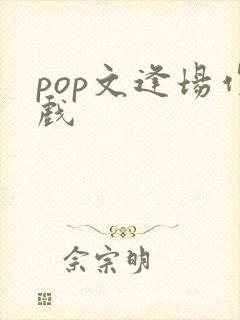 pop文逢場作
戲
佘宗明